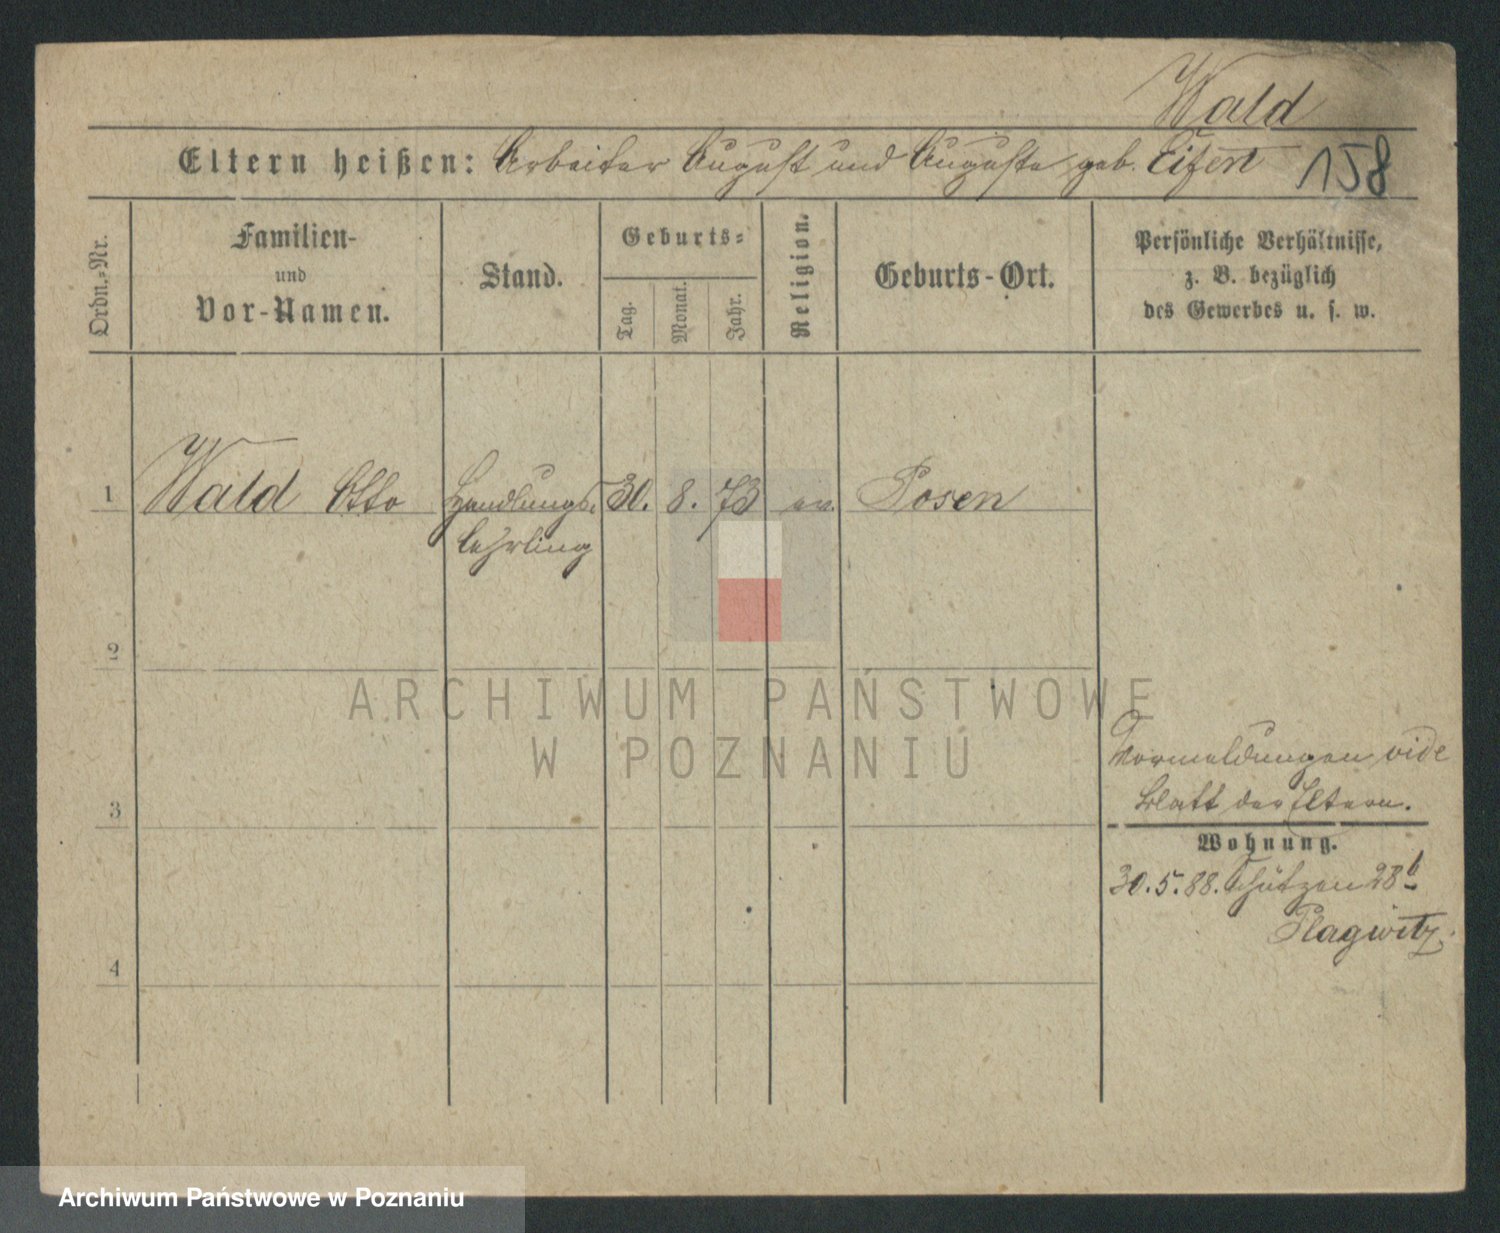 Wald
Eltern heißen: Arbeiter August und Auguste geb. Eifert 158
Ordn.-Nr.
Familien-
und
Vor-Namen.
Stand.
Geburts-
Tag.
Monat.
Jahr.
Religion.
Geburts-Ort.
Persönliche Verhältnisse,
z. B. bezüglich
des Gewerbes u. s. w.
1 Wald Otto Handlungs- 30. 8. 73 ev. Posen
lehrling
2
ARCHIWUM PAŃSTWOWE
W POZNANIU
Vormeldungen vide
Blatt der Eltern.
3
Wohnung.
30.5.88. Schützen 28b
Plagwitz.
4
Archiwum Państwowe w Poznaniu